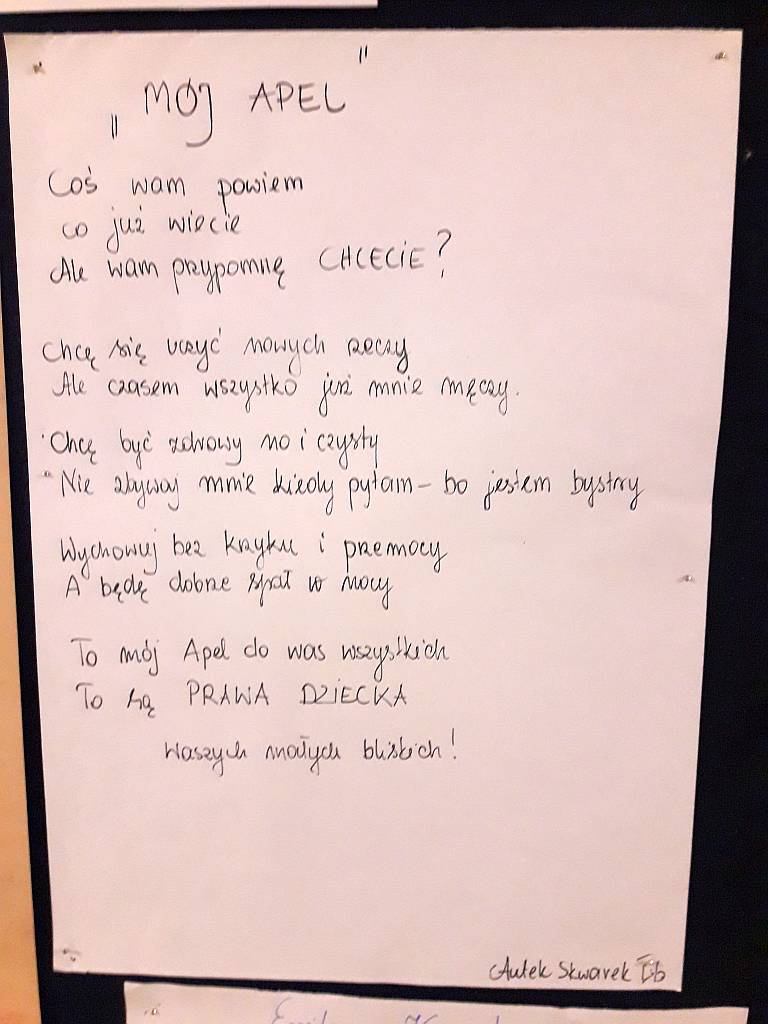 „MÓJ APEL"
Coś wam powiem
co już wiecie
Ale wam przypomnę CHCECIE?
Chcę się uczyć nowych rzeczy
Ale czasem wszystko już mnie męczy.
Chcę być zdrowy no i czysty
Nie zbywaj mnie kiedy pytam – bo jestem bystry
Wychowuj bez krzyku i przemocy
A będę dobrze spał w nocy
To mój Apel do was wszystkich
To są PRAWA DZIECKA
Waszych małych bliskich!
Skwarek